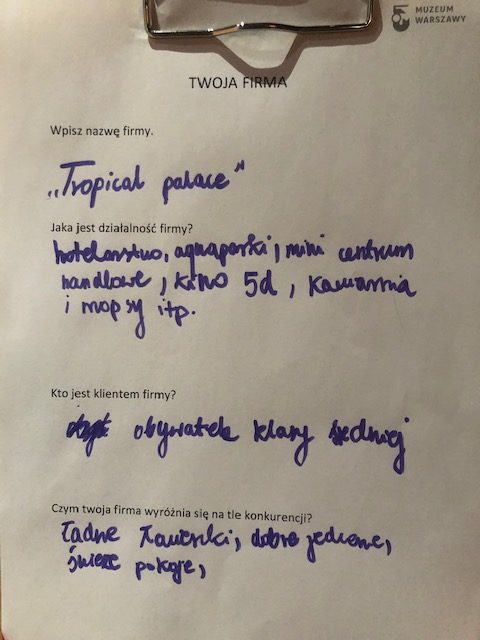 MUZEUM
WARSZAWY
TWOJA FIRMA
Wpisz nazwę firmy.
„Tropical palace"
Jaka jest działalność firmy?
hotelarstwo, aquaparki, mini centrum
handlowe, kino 5d, kawiarnia
i mopsy itp.
Kto jest klientem firmy?
obywatel klasy średniej
Czym twoja firma wyróżnia się na tle konkurencji?
Ładne dobre jedzenie,
świeże pokoje,